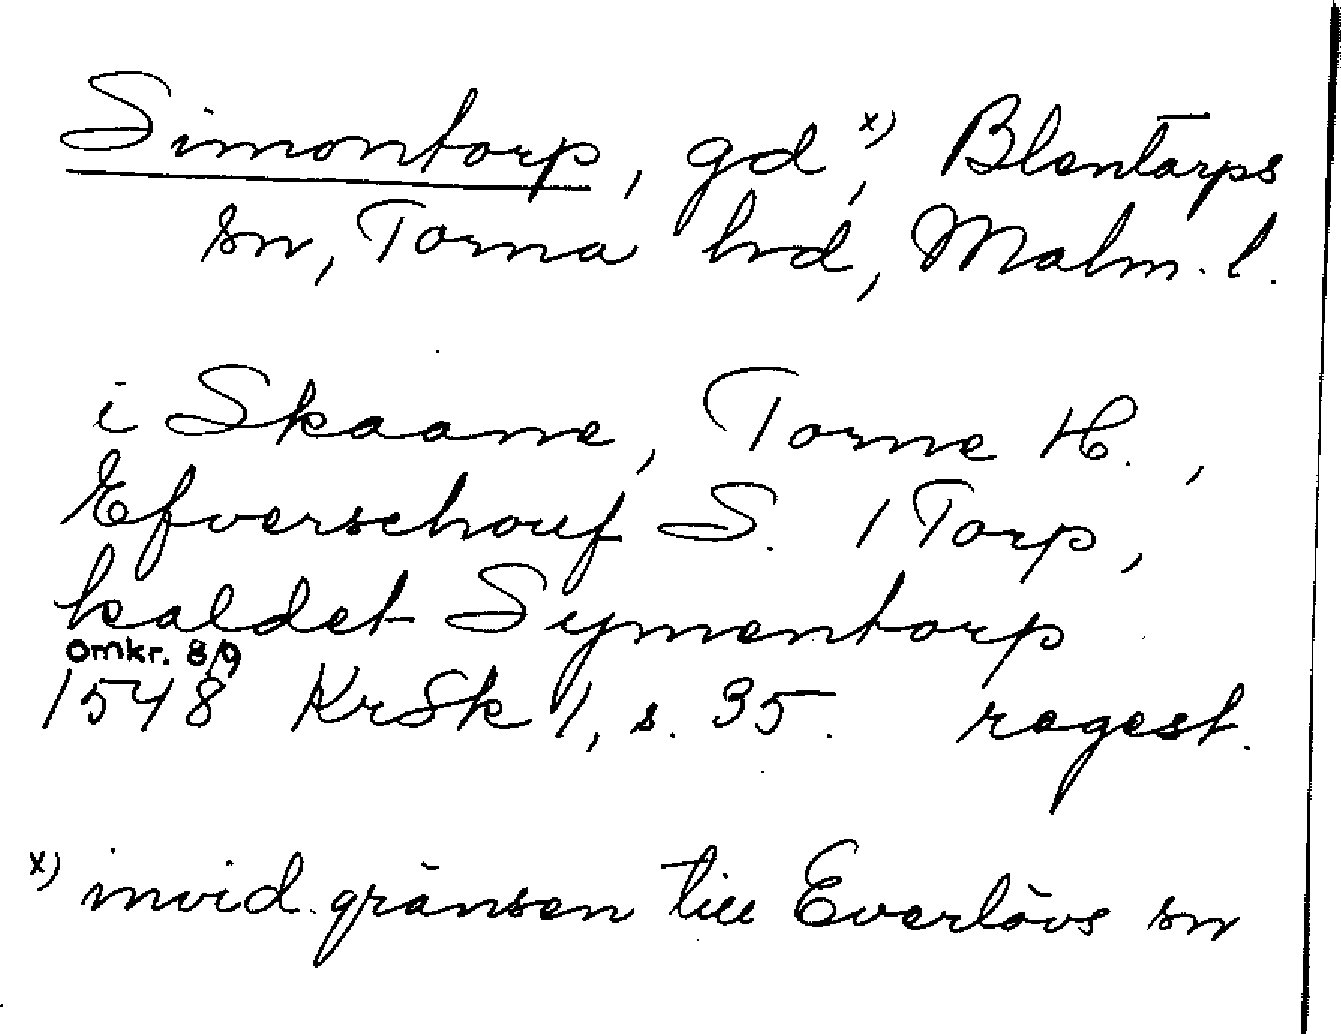 Simontorp, gd x), Blentarps
sn, Torna hrd, Malm. l.
i Skaane, Torne H.,
Efverschouf S. 1 Torp,
kaldet Symentorp
omkr. 8/9
1548 KrSk 1, s. 35. regest.
x) invid gränsen till Everlövs sn